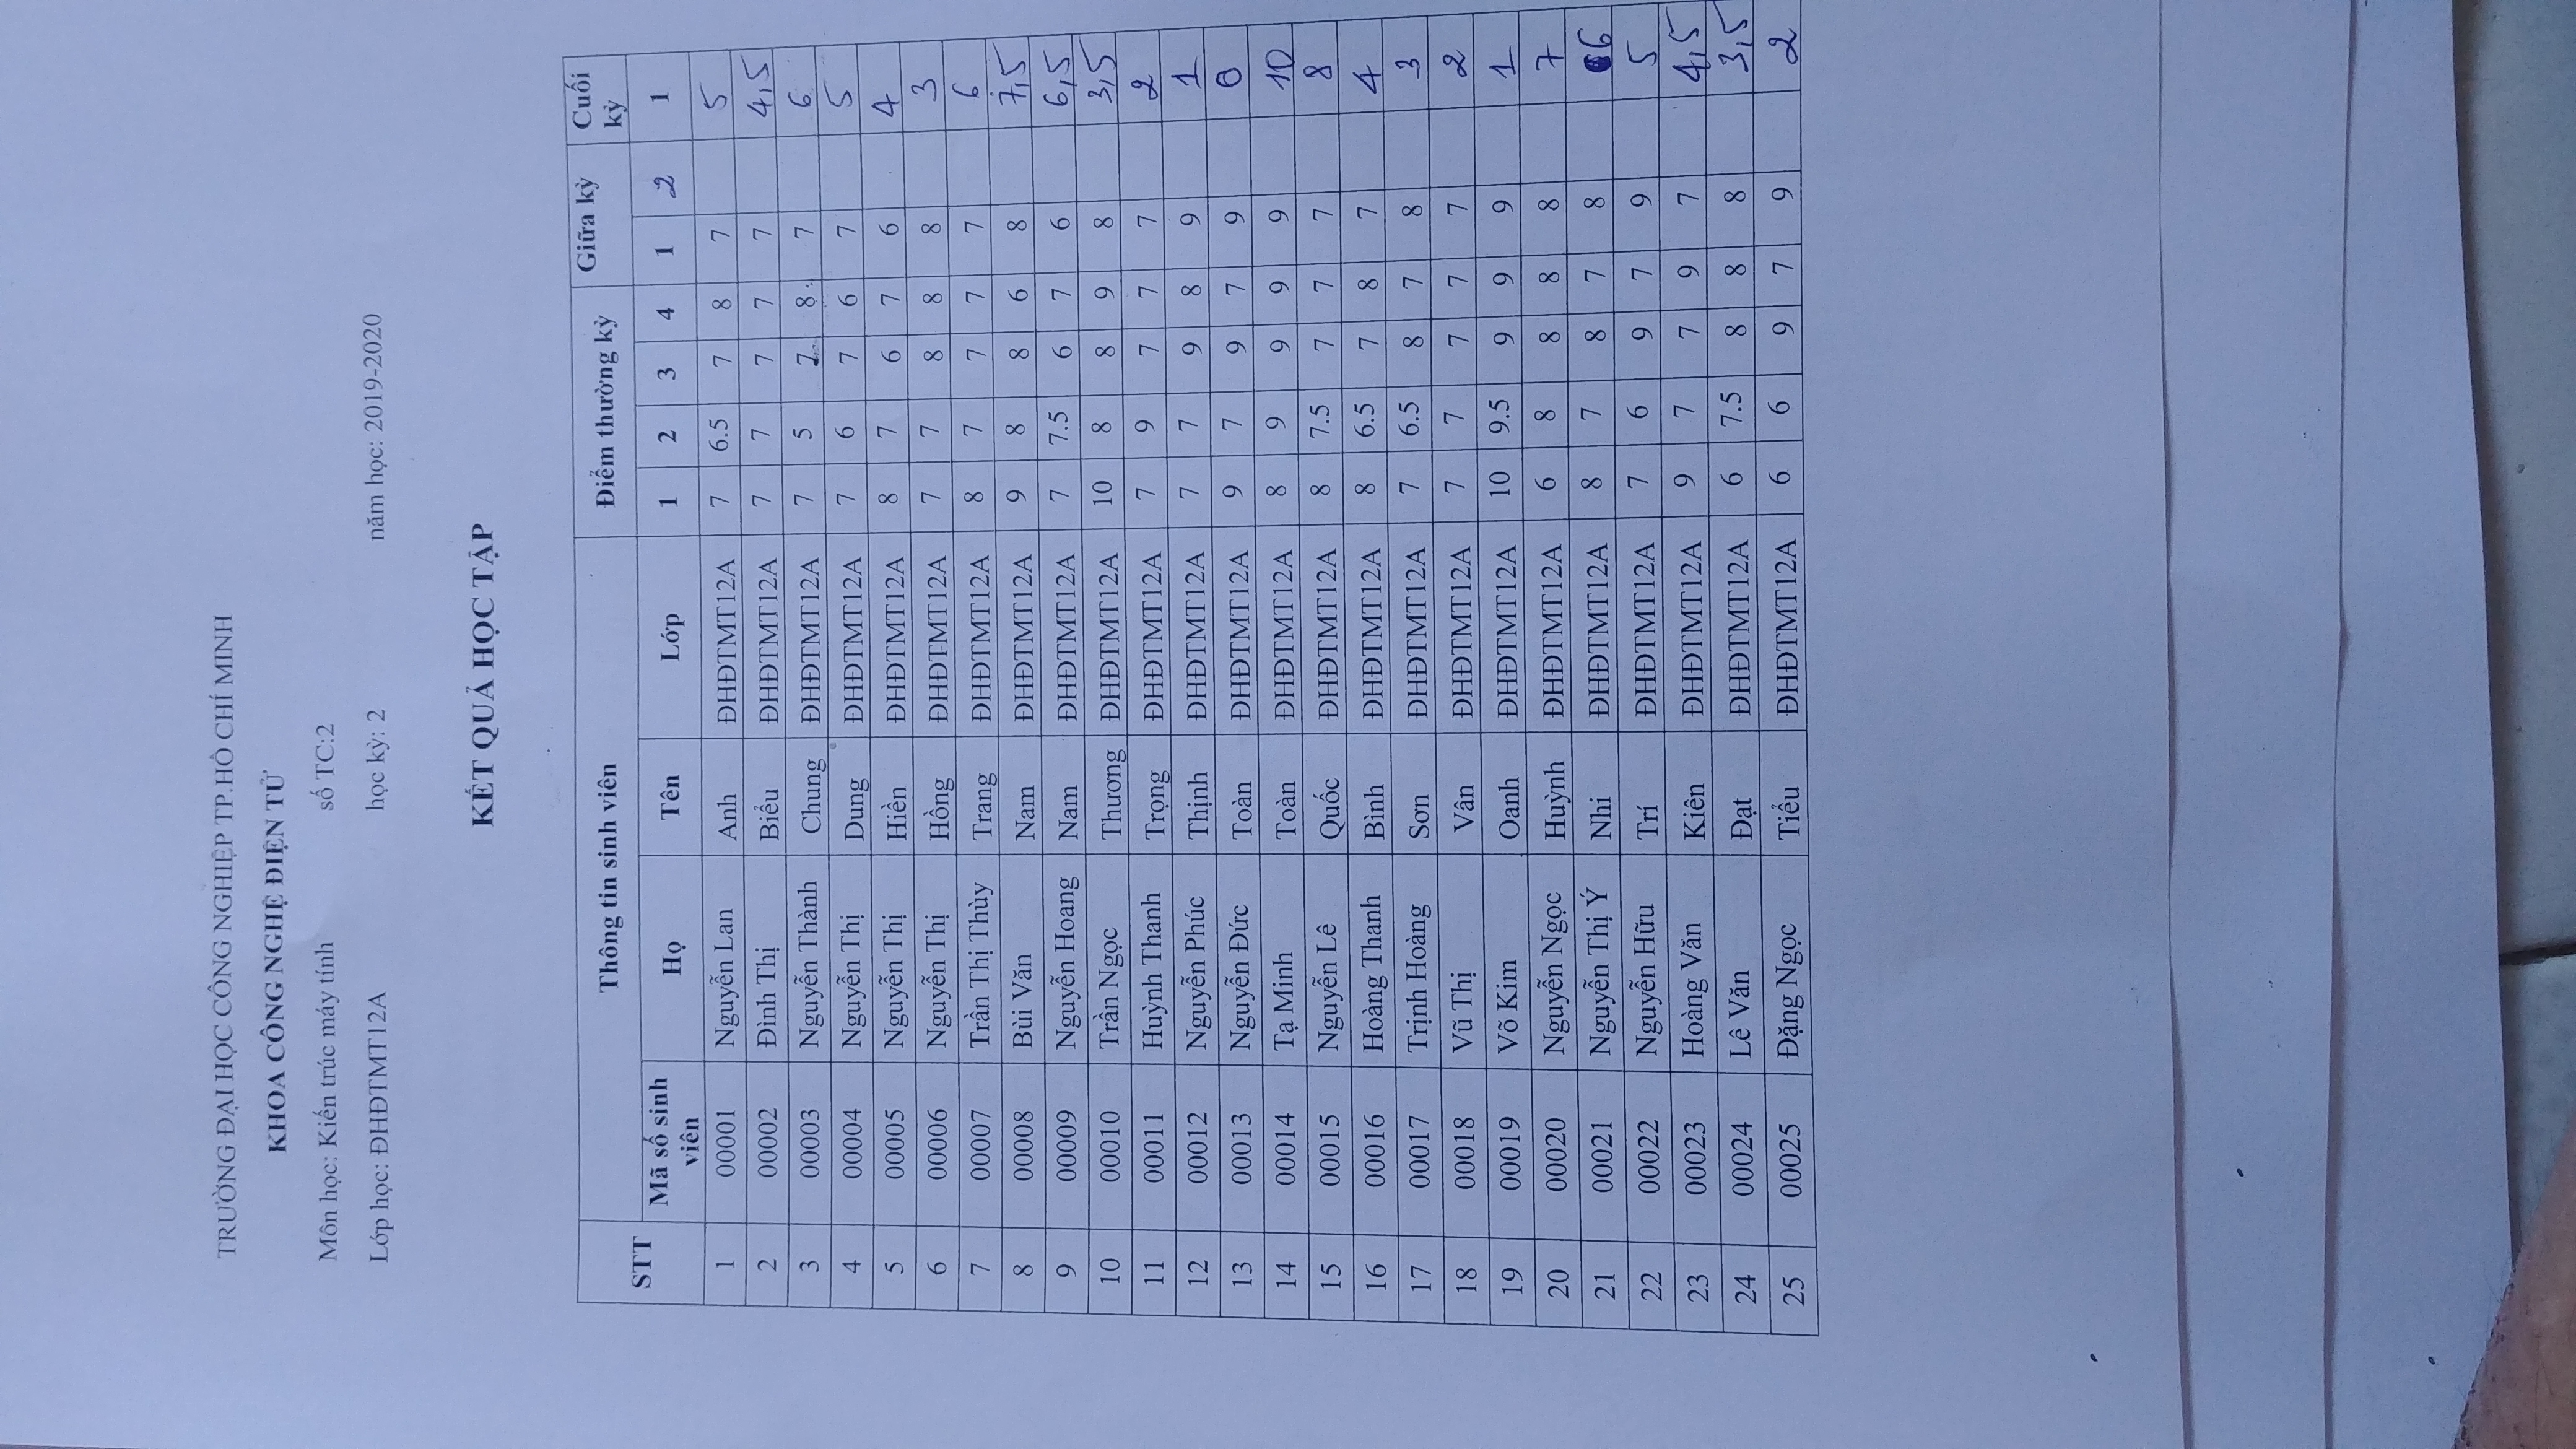 TRƯỜNG ĐẠI HỌC CÔNG NGHIỆP TP.HỒ CHÍ MINH
KHOA CÔNG NGHỆ ĐIỆN TỬ
Môn học: Kiến trúc máy tính số TC:2
Lớp học: ĐHĐTMT12A học kỳ: 2 năm học: 2019-2020
KẾT QUẢ HỌC TẬP
STT Thông tin sinh viên Điểm thường kỳ Giữa kỳ Cuối kỳ
Mã số sinh viên Họ Tên Lớp 1 2 3 4 1 2 1
1 00001 Nguyễn Lan Anh ĐHĐTMT12A 7 6.5 7 8 7 5
2 00002 Đình Thị Biểu ĐHĐTMT12A 7 7 7 7 7 4,5
3 00003 Nguyễn Thành Chung ĐHĐTMT12A 7 5 7 8 7 6
4 00004 Nguyễn Thị Dung ĐHĐTMT12A 7 6 7 6 7 5
5 00005 Nguyễn Thị Hiền ĐHĐTMT12A 8 7 6 7 6 4
6 00006 Nguyễn Thị Hồng ĐHĐTMT12A 7 7 8 8 8 3
7 00007 Trần Thị Thùy Trang ĐHĐTMT12A 8 7 7 7 7 6
8 00008 Bùi Văn Nam ĐHĐTMT12A 9 8 8 6 8 7,5
9 00009 Nguyễn Hoang Nam ĐHĐTMT12A 7 7.5 6 7 6 6,5
10 00010 Trần Ngọc Thương ĐHĐTMT12A 10 8 8 9 8 3,5
11 00011 Huỳnh Thanh Trọng ĐHĐTMT12A 7 9 7 7 7 2
12 00012 Nguyễn Phúc Thịnh ĐHĐTMT12A 7 7 9 8 9 1
13 00013 Nguyễn Đức Toàn ĐHĐTMT12A 9 7 9 7 9 0
14 00014 Tạ Minh Toàn ĐHĐTMT12A 8 9 9 9 9 10
15 00015 Nguyễn Lê Quốc ĐHĐTMT12A 8 7.5 7 7 7 8
16 00016 Hoàng Thanh Bình ĐHĐTMT12A 8 6.5 7 8 7 4
17 00017 Trịnh Hoàng Sơn ĐHĐTMT12A 7 6.5 8 7 8 3
18 00018 Vũ Thị Vân ĐHĐTMT12A 7 7 7 7 7 2
19 00019 Võ Kim Oanh ĐHĐTMT12A 10 9.5 9 9 9 1
20 00020 Nguyễn Ngọc Huỳnh ĐHĐTMT12A 6 8 8 8 8 7
21 00021 Nguyễn Thị Ý Nhi ĐHĐTMT12A 8 7 8 7 8 6
22 00022 Nguyễn Hữu Trí ĐHĐTMT12A 7 6 9 7 9 5
23 00023 Hoàng Văn Kiên ĐHĐTMT12A 9 7 7 9 7 4,5
24 00024 Lê Văn Đạt ĐHĐTMT12A 6 7.5 8 8 8 3,5
25 00025 Đặng Ngọc Tiểu ĐHĐTMT12A 6 6 9 7 9 2